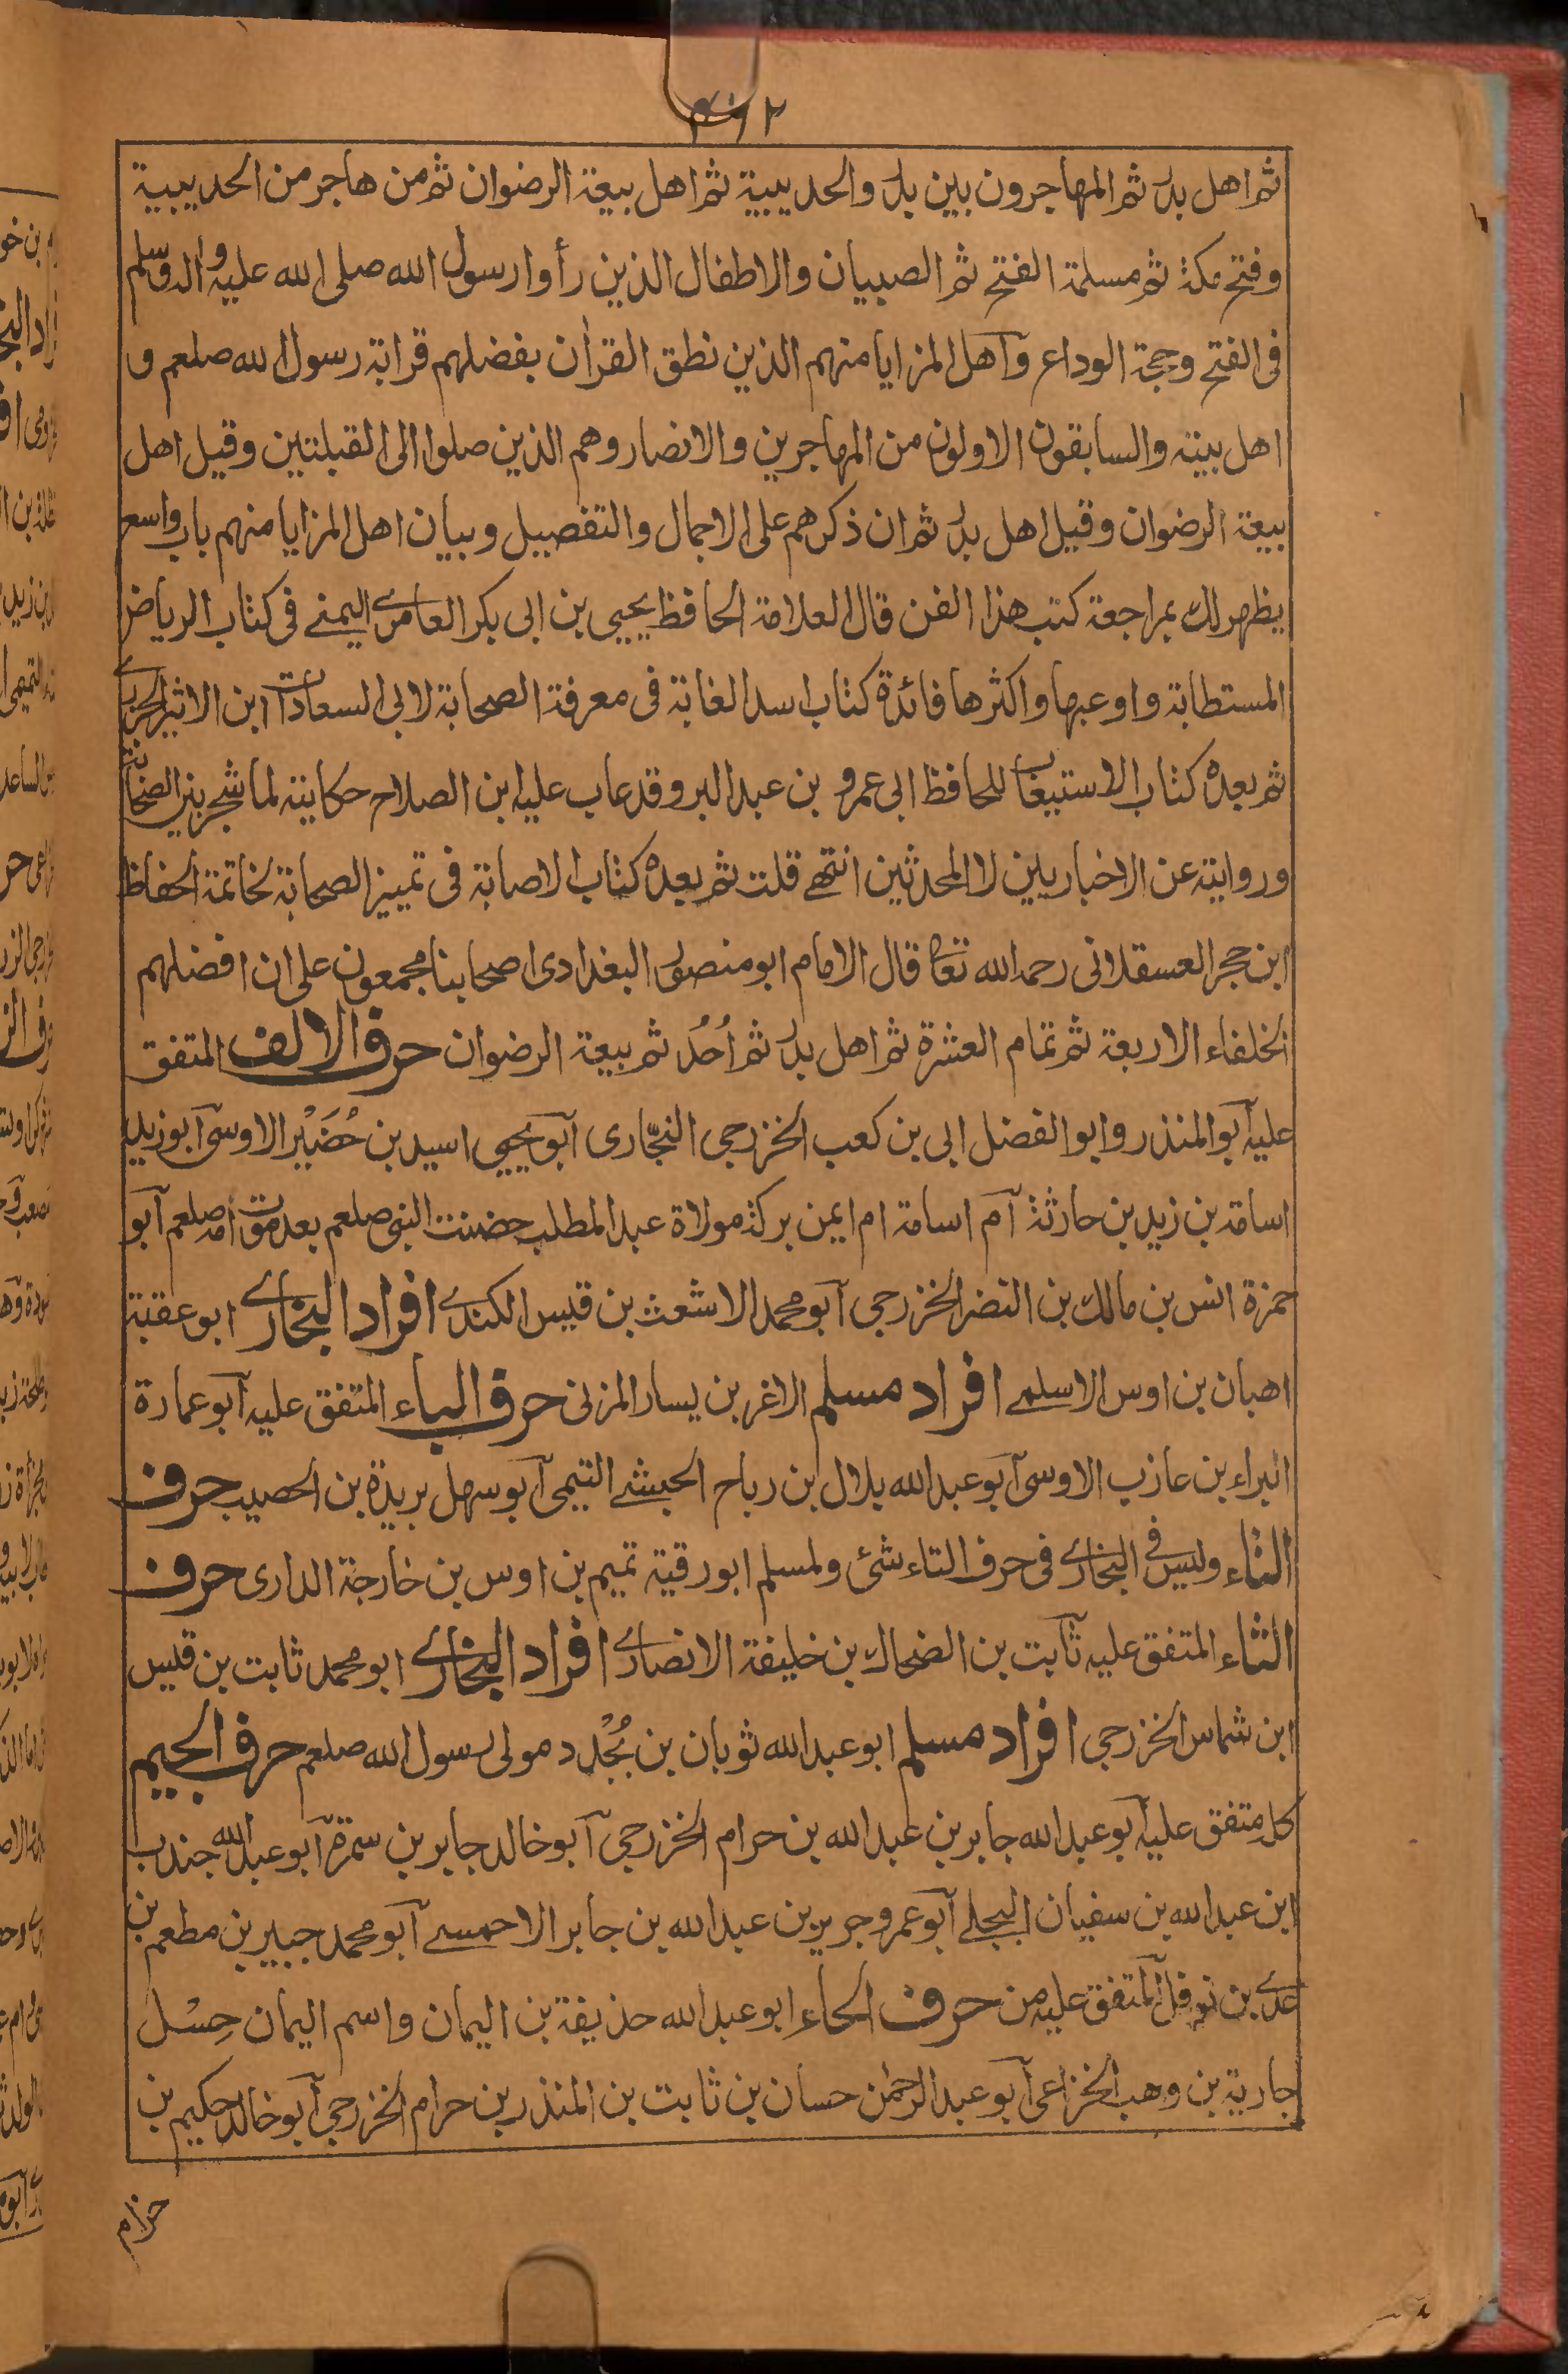 ثم اهل بدر ثم المهاجرون بين بدر والحديبية ثم اهل بيعة الرضوان ثم من هاجر من الحديبية
وفتح مكة ثم مسلمة الفتح ثم الصبيان والاطفال الذين رأوا رسول الله صلى الله عليه واله وسلم
فى الفتح وحجة الوداع وآهل المزايا منهم الذين نطق القرأن بفضلهم قرابة رسول الله صلعم و
اهل بيته والسابقون الاولون من المهاجرين والانصار وهم الذين صلوا الى القبلتين وقيل اهل
بيعة الرضوان وقيل اهل بدر ثم ان ذكرهم على الاجمال والتفصيل وبيان اهل المزايا منهم باب واسع
يظهر لك بمراجعة كتب هذا الفن قال العلامة الحافظ يحيى بن ابى بكر العامرے اليمنے فى كتاب الرياض
المستطابة واوعبها واكثرها فائدة كتاب اسد الغابة فى معرفة الصحابة لابى السعادات ابن الاثير الجزرے
ثم بعده كتاب الاستيعاب للحافظ ابى عمرو بن عبد البر وقد عاب عليه ابن الصلاح حكايته لما شجر بين الصحابة
وروايته عن الاخباريين لا المحدثين انتهے قلت ثم بعده كتاب الاصابة فى تمييز الصحابة لخاتمة الحفاظ
ابن حجر العسقلانى رحمه الله تعالى قال الامام ابو منصور البغدادى اصحابنا مجمعون على ان افضلهم
الخلفاء الاربعة ثم تمام العشرة ثم اهل بدر ثم اُحُد ثم بيعة الرضوان حرف الالف المتفق
عليه آبو المنذر وابو الفضل ابى بن كعب الخزرجى النجّارى آبو يحيى اسيد بن حُضَيْر الاوسى آبو زيد
اسامة بن زيد بن حارثة آم اسامة ام ايمن بركة مولاة عبد المطلب حضنت النبى صلعم بعد موت امه صلعم آبو
حمزة انس بن مالك بن النضر الخزرجى آبو محمد الاشعث بن قيس الكندے افراد البخارے ابو عقبة
اهبان بن اوس الاسلمے افراد مسلم الاغر بن يسار المزنى حرف الباء المتفق عليه آبو عمارة
البراء بن عازب الاوسى آبو عبد الله بلال بن رباح الحبشے التيمى آبو سهل بريدة بن الحصيب حرف
التاء وليس فى البخارے فى حرف التاء شئ ولمسلم ابو رقية تميم بن اوس بن خارجة الدارى حرف
الثاء المتفق عليه ثابت بن الضحاك بن خليفة الانصارے افراد البخارے ابو محمد ثابت بن قيس
ابن شماس الخزرجى افراد مسلم ابو عبد الله ثوبان بن بُجْدد مولى رسول الله صلعم حرف الجيم
كله متفق عليه آبو عبد الله جابر بن عبد الله بن حرام الخزرجى آبو خالد جابر بن سمرة آبو عبد الله جندب
ابن عبد الله بن سفيان البجلے آبو عمرو جرير بن عبد الله بن جابر الاحمسے آبو محمد جبير بن مطعم بن
عدے بن نوفل المتفق عليه من حرف الحاء ابو عبد الله حذيفة بن اليمان واسم اليمان حِسْل
جارية بن وهب الخزاعى آبو عبد الرحمٰن حسان بن ثابت بن المنذر بن حرام الخزرجى آبو خالد حكيم بن
حزام